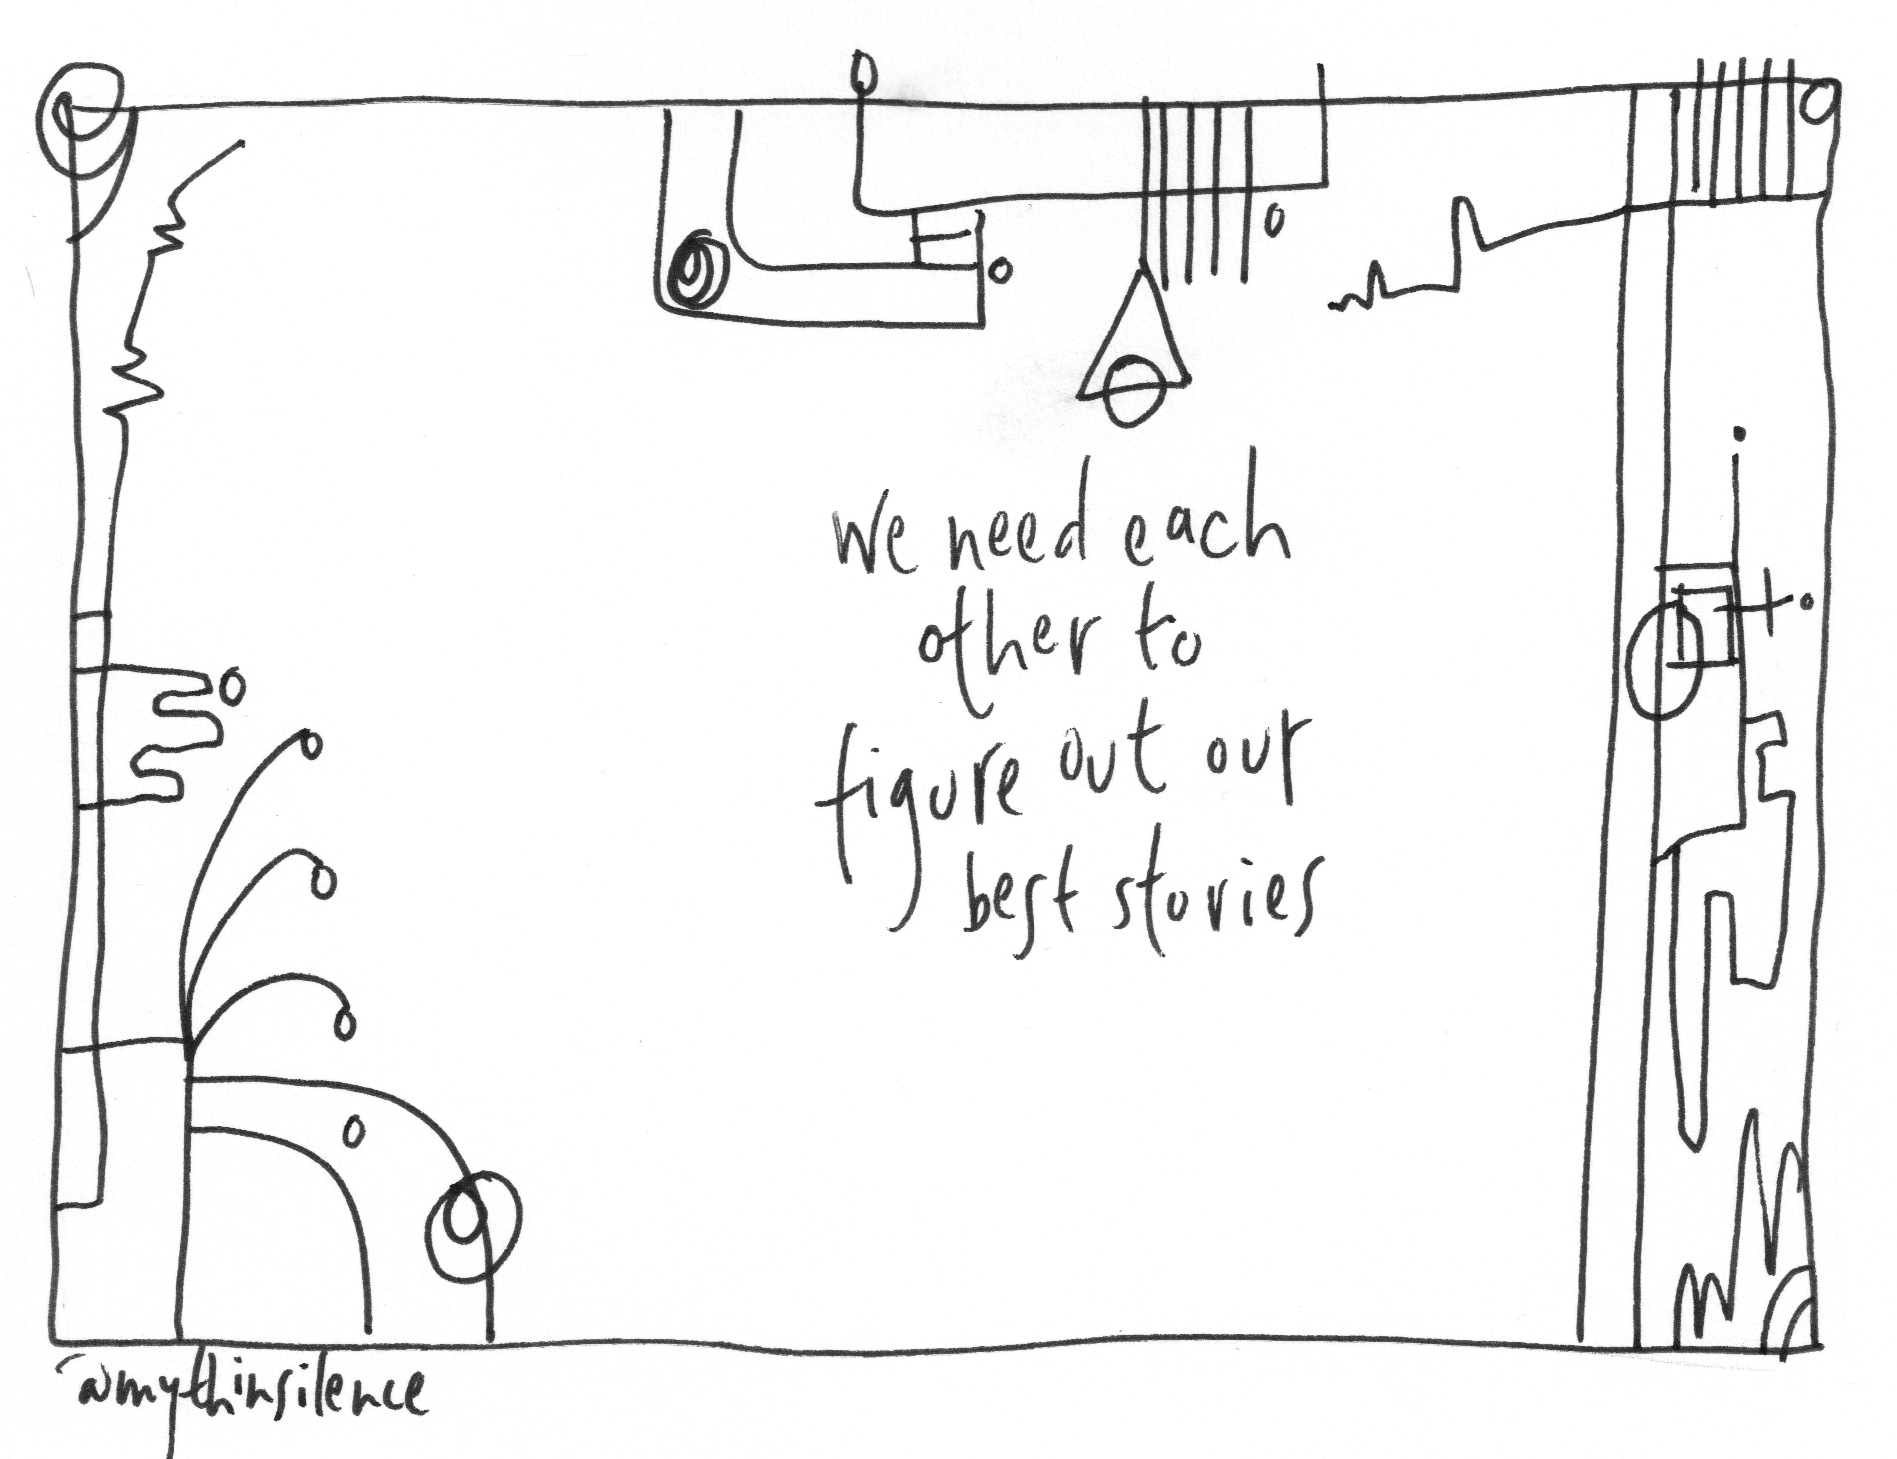 we need each
other to
figure out our
best stories
@mythinsilence